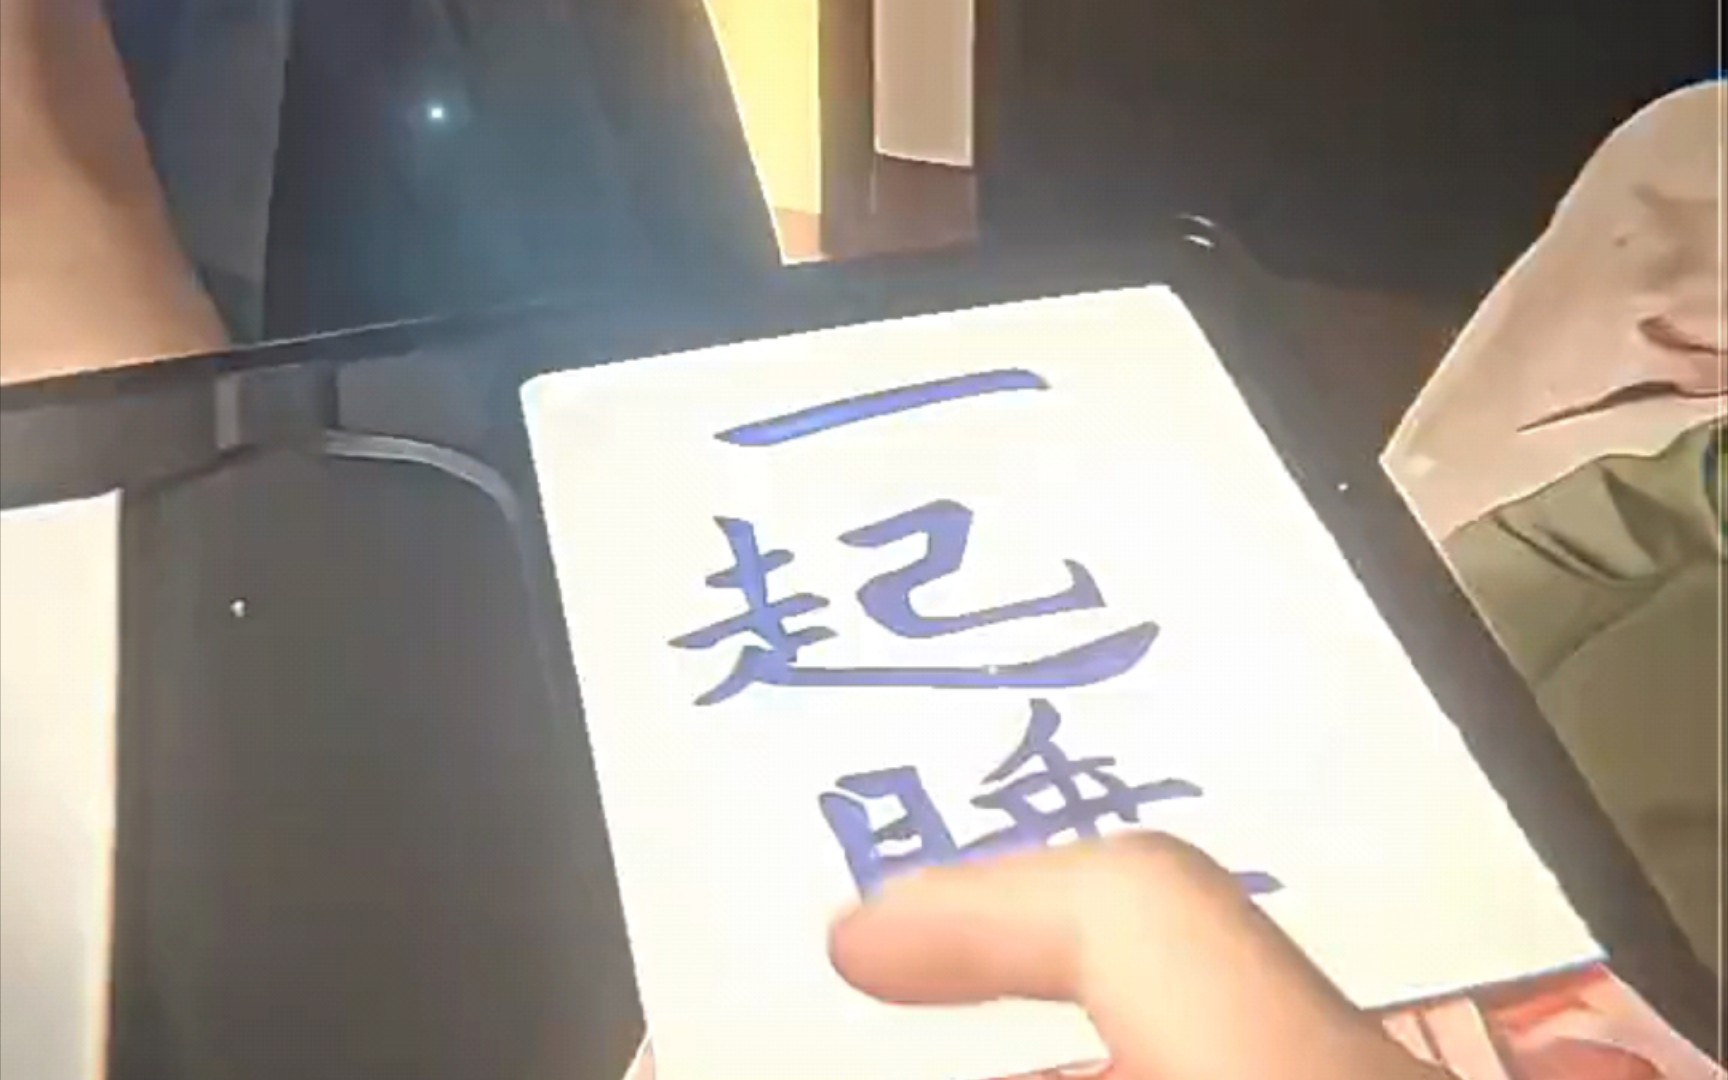 一
起
睡